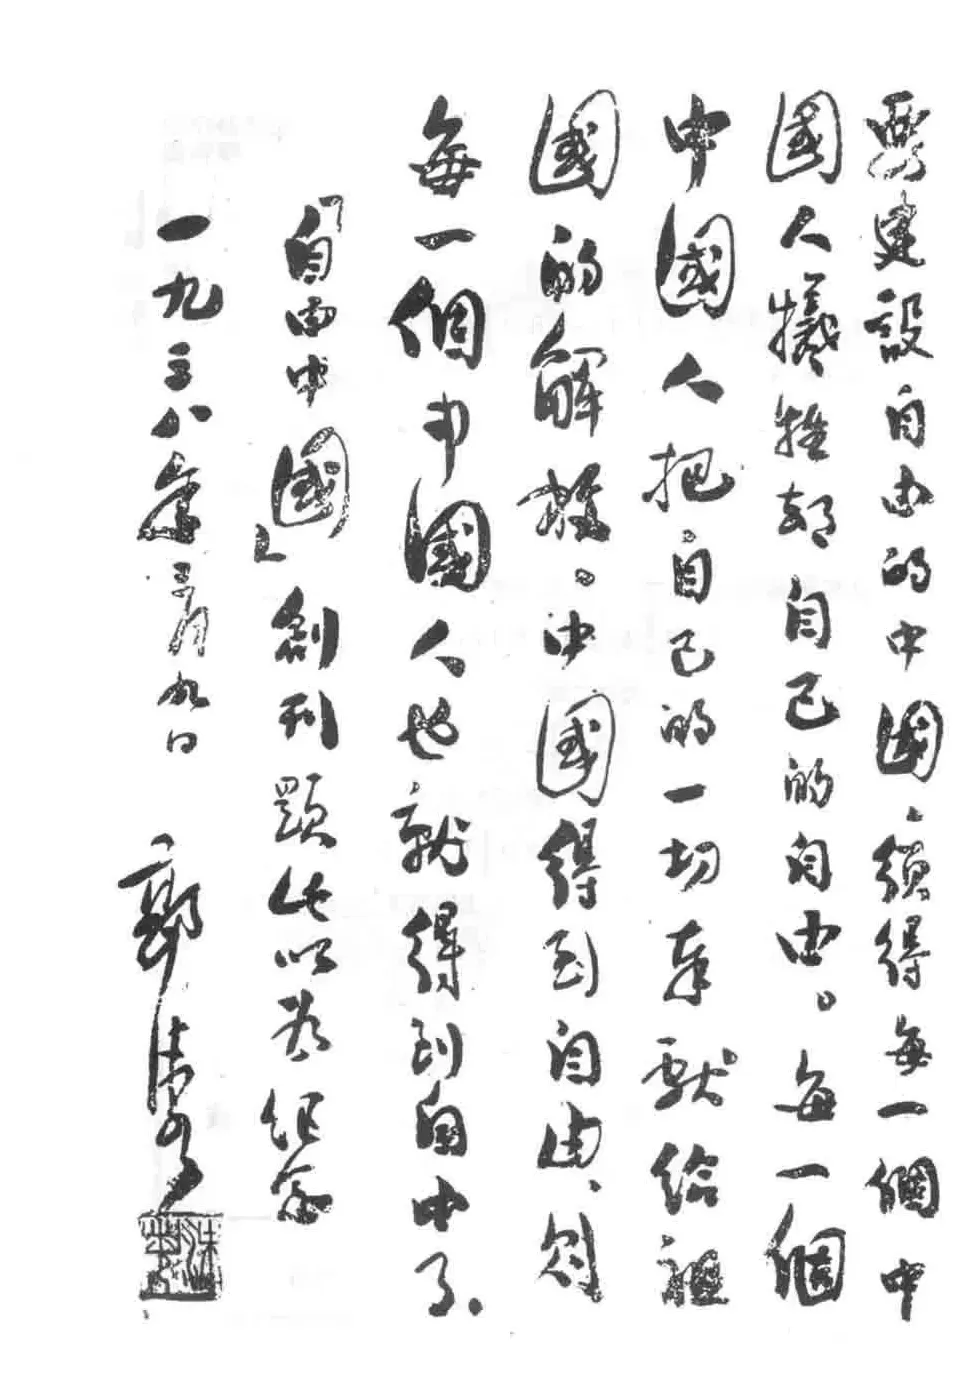 要建設自由的中國,須得每一個中
國人犧牲却自己的自由。每一個
中國人把自己的一切奉獻給祖
國的解放。中國得到自由、則
每一個中國人也就得到自由了.
「自由中國」創刊題此以为紀念
一九三八年三月九日 郭沫若